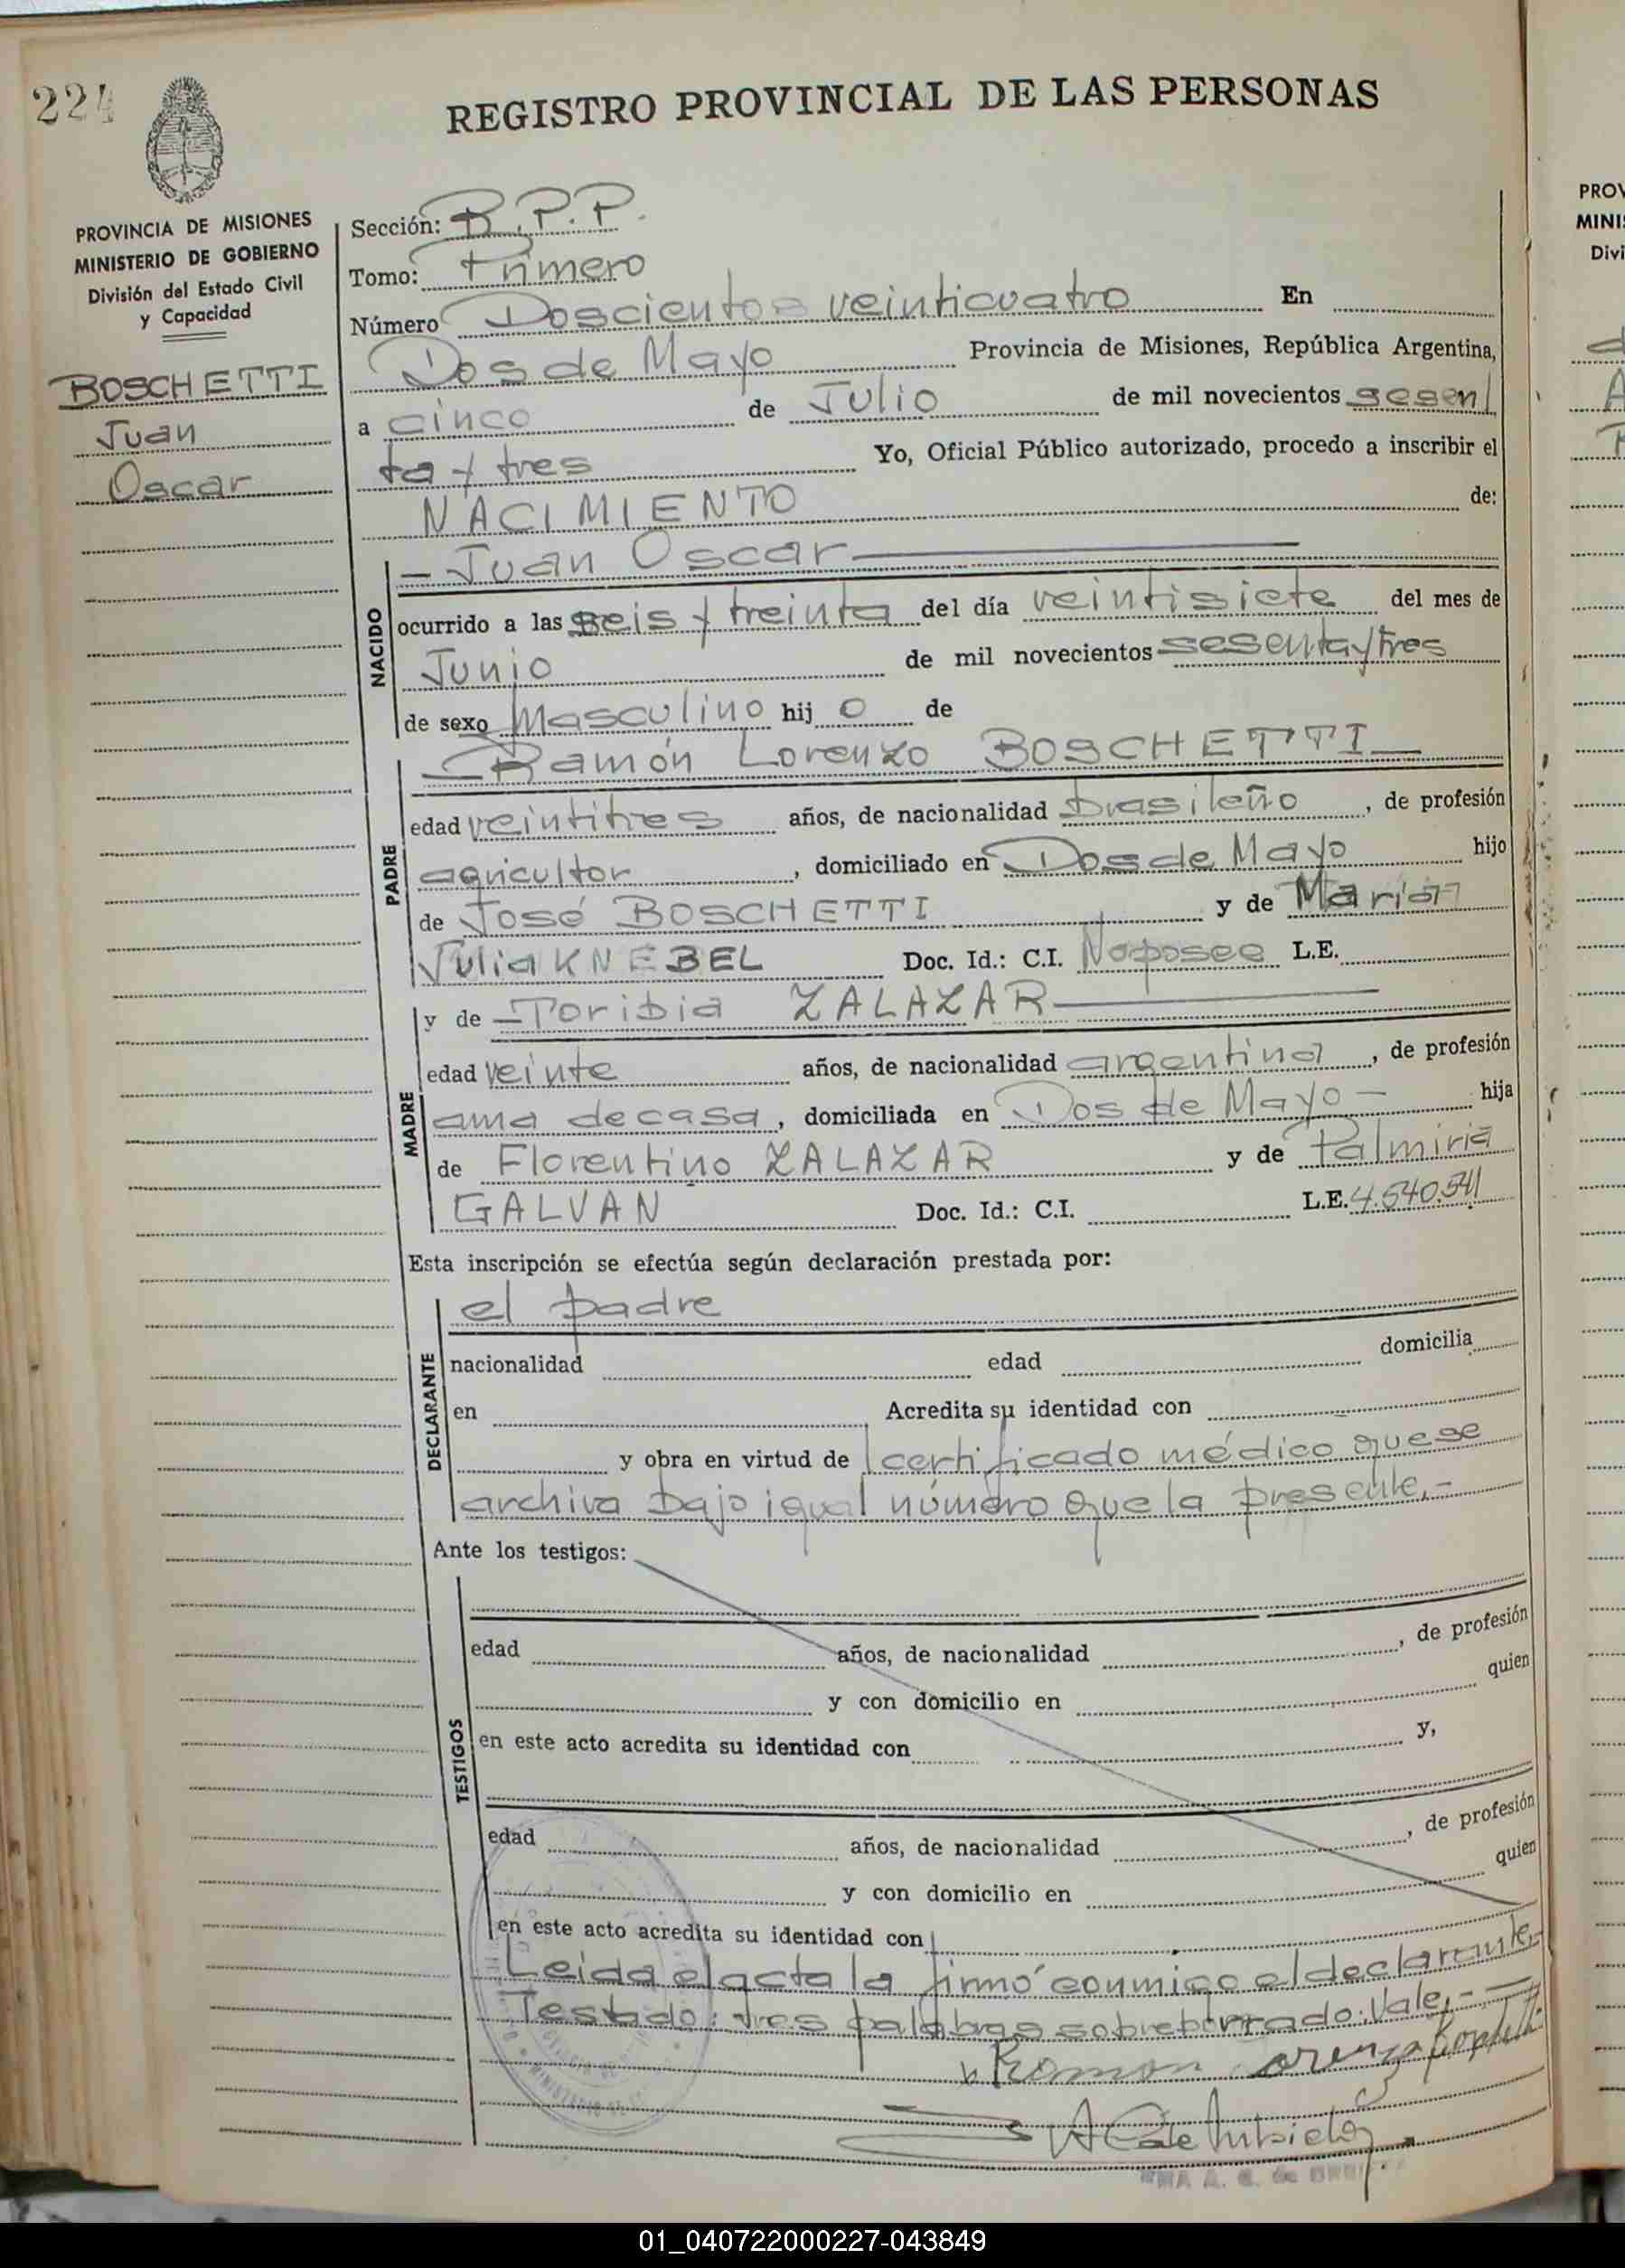 224
REGISTRO PROVINCIAL DE LAS PERSONAS
PROVINCIA DE MISIONES
MINISTERIO DE GOBIERNO
División del Estado Civil
y Capacidad
BOSCHETTI
Juan
Oscar
Sección: R.P.P.
Tomo: Primero
Número Doscientos veinticuatro En
Dos de Mayo Provincia de Misiones, República Argentina,
a cinco de Julio de mil novecientos sesen
ta y tres Yo, Oficial Público autorizado, procedo a inscribir el
NACIMIENTO de:
NACIDO
— Juan Oscar —
ocurrido a las seis y treinta del día veintisiete del mes de
Junio de mil novecientos sesenta y tres
de sexo Masculino hij o de
PADRE
— Ramón Lorenzo BOSCHETTI —
edad veintitres años, de nacionalidad brasileño, de profesión
agricultor, domiciliado en Dos de Mayo hijo
de José BOSCHETTI y de María
Julia KNEBEL Doc. Id.: C.I. No posee L.E.
MADRE
y de — Toribia ZALAZAR —
edad veinte años, de nacionalidad argentina, de profesión
ama de casa, domiciliada en Dos de Mayo — hija
de Florentino ZALAZAR y de Palmiria
GALVAN Doc. Id.: C.I. L.E. 4.540.541
Esta inscripción se efectúa según declaración prestada por:
DECLARANTE
el padre
nacionalidad edad domicilia
en Acredita su identidad con
y obra en virtud de certificado médico que se
archiva bajo igual número que la presente.-
Ante los testigos:
TESTIGOS
edad años, de nacionalidad , de profesión
y con domicilio en quien
en este acto acredita su identidad con y,
edad años, de nacionalidad , de profesión
y con domicilio en quien
en este acto acredita su identidad con
Leida el acta la firmó conmigo el declarante.
Testado: tres palabras sobreborrado: Vale.-
Ramon Lorenzo Boschetti
01_040722000227-043849